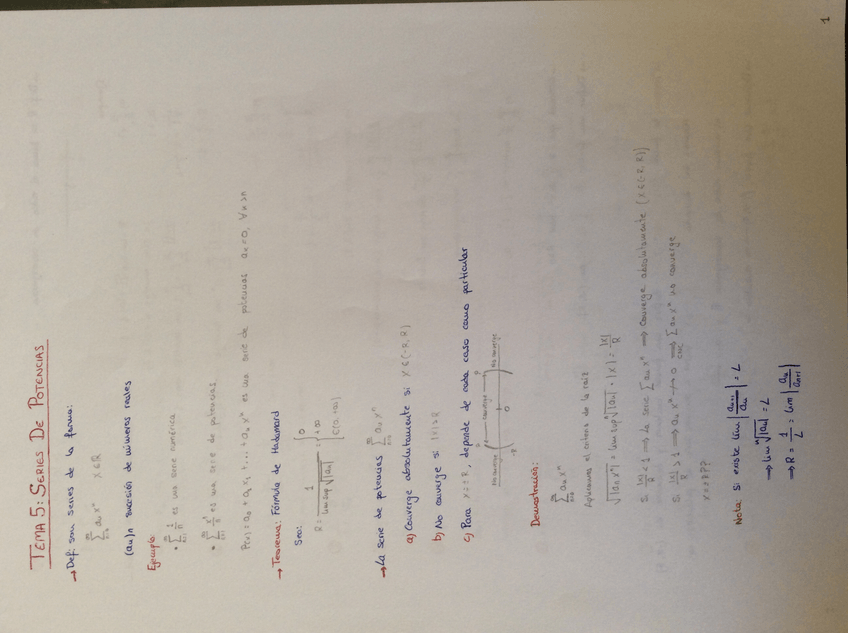 TEMA 5: SERIES DE POTENCIAS
→ Def: son series de la forma:
∑_{n=0}^{∞} aₙ xⁿ x ∈ ℝ
(aₙ)n sucesión de números reales
Ejemplo:
• ∑_{n=1}^{∞} 1/n es una serie numérica
• ∑_{n=1}^{∞} xⁿ/n es una serie de potencias
P(x) = a₀ + a₁x + ... + aₙ xⁿ es una serie de potencias aₙ = 0, ∀n > n
→ Teorema: Fórmula de Hadamard
Sea:
R = 1/(lim sup ⁿ√|aₙ|) = { 0, +∞, C(0,+∞)
→ La serie de potencias ∑_{n=0}^{∞} aₙ xⁿ
a) Converge absolutamente si x ∈ (-R, R)
b) No converge si |x| > R
c) Para x = ±R, depende de cada caso como particular
No converge Converge No converge
-R 0 R
Demostración:
∑_{n=0}^{∞} aₙ xⁿ
Aplicamos el criterio de la raíz
ⁿ√|aₙ xⁿ| = lim sup ⁿ√|aₙ| · |x| = |x|/R
Si |x|/R < 1 ⟹ La serie ∑ aₙ xⁿ ⟹ Converge absolutamente (x ∈ (-R, R))
Si |x|/R > 1 ⟹ aₙ xⁿ ↛ 0 ⟹ ∑ aₙ xⁿ no converge
CNC
x = ±R??
Nota: si existe lim |aₙ₊₁/aₙ| = L
→ lim ⁿ√|aₙ| = L
→ R = 1/L = lim |aₙ/aₙ₊₁|
1